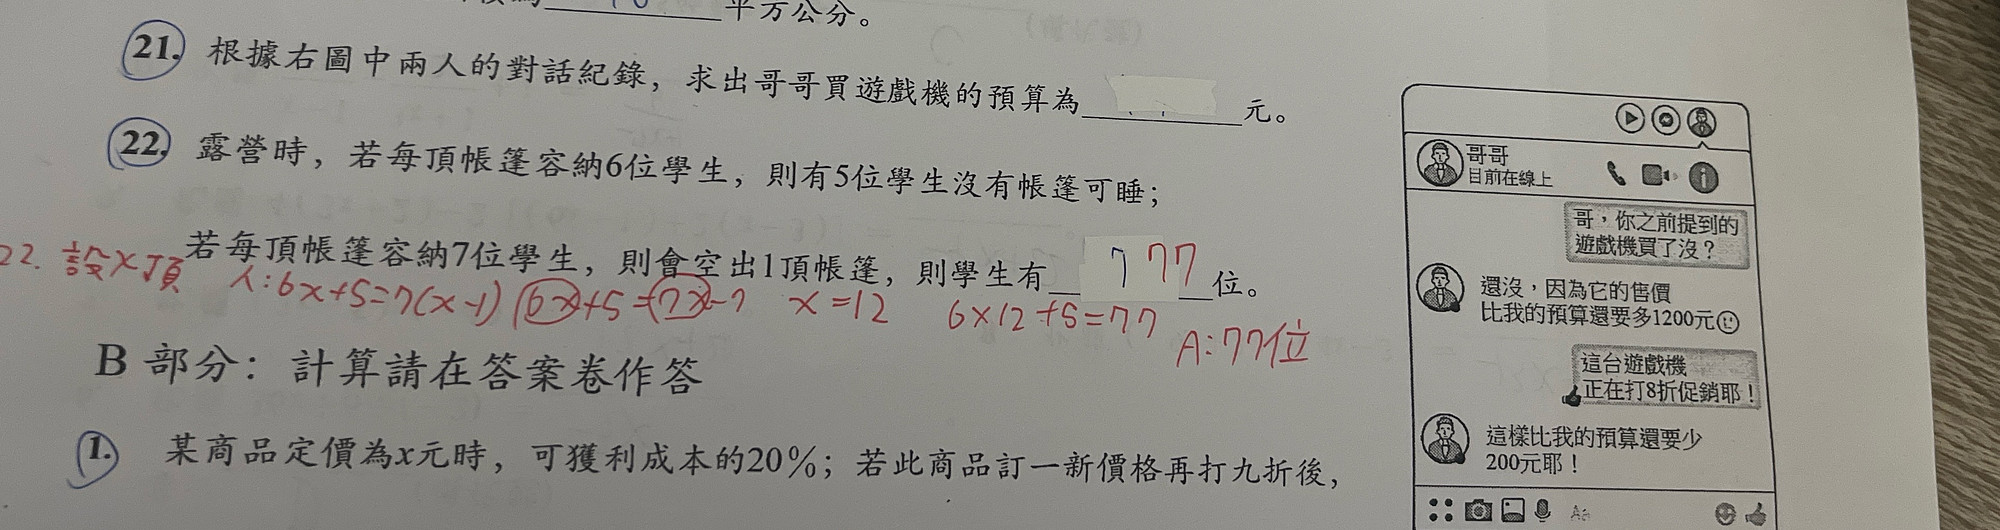 平方公分。
21. 根據右圖中兩人的對話紀錄，求出哥哥買遊戲機的預算為______元。
22. 露營時，若每頂帳篷容納6位學生，則有5位學生沒有帳篷可睡；
若每頂帳篷容納7位學生，則會空出1頂帳篷，則學生有 77 位。
22. 設x頂 人:6x+5=7(x-1) 6x+5=7x-7 x=12 6×12+5=77
A:77位
B 部分：計算請在答案卷作答
1. 某商品定價為x元時，可獲利成本的20%；若此商品訂一新價格再打九折後，
哥哥
目前在線上
哥，你之前提到的
遊戲機買了沒？
還沒，因為它的售價
比我的預算還要多1200元
這台遊戲機
正在打8折促銷耶！
這樣比我的預算還要少
200元耶！
Aa